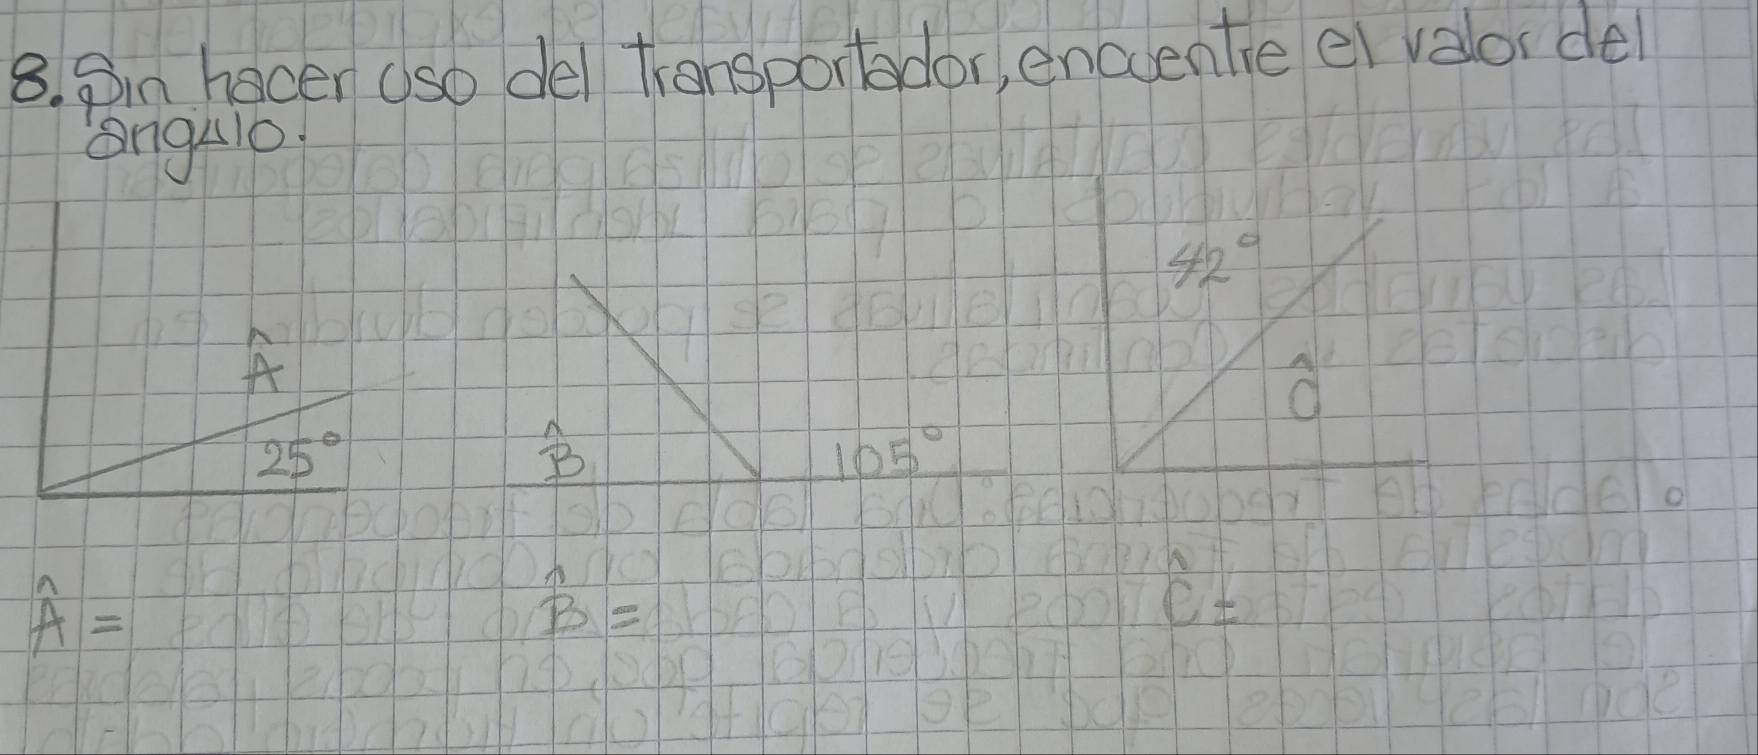 8. Sin hacer uso del transportador, encuentre el valor del
angulo.
Â
25°
B̂
105°
42°
Ĉ
Â =
B̂ =
Ĉ =